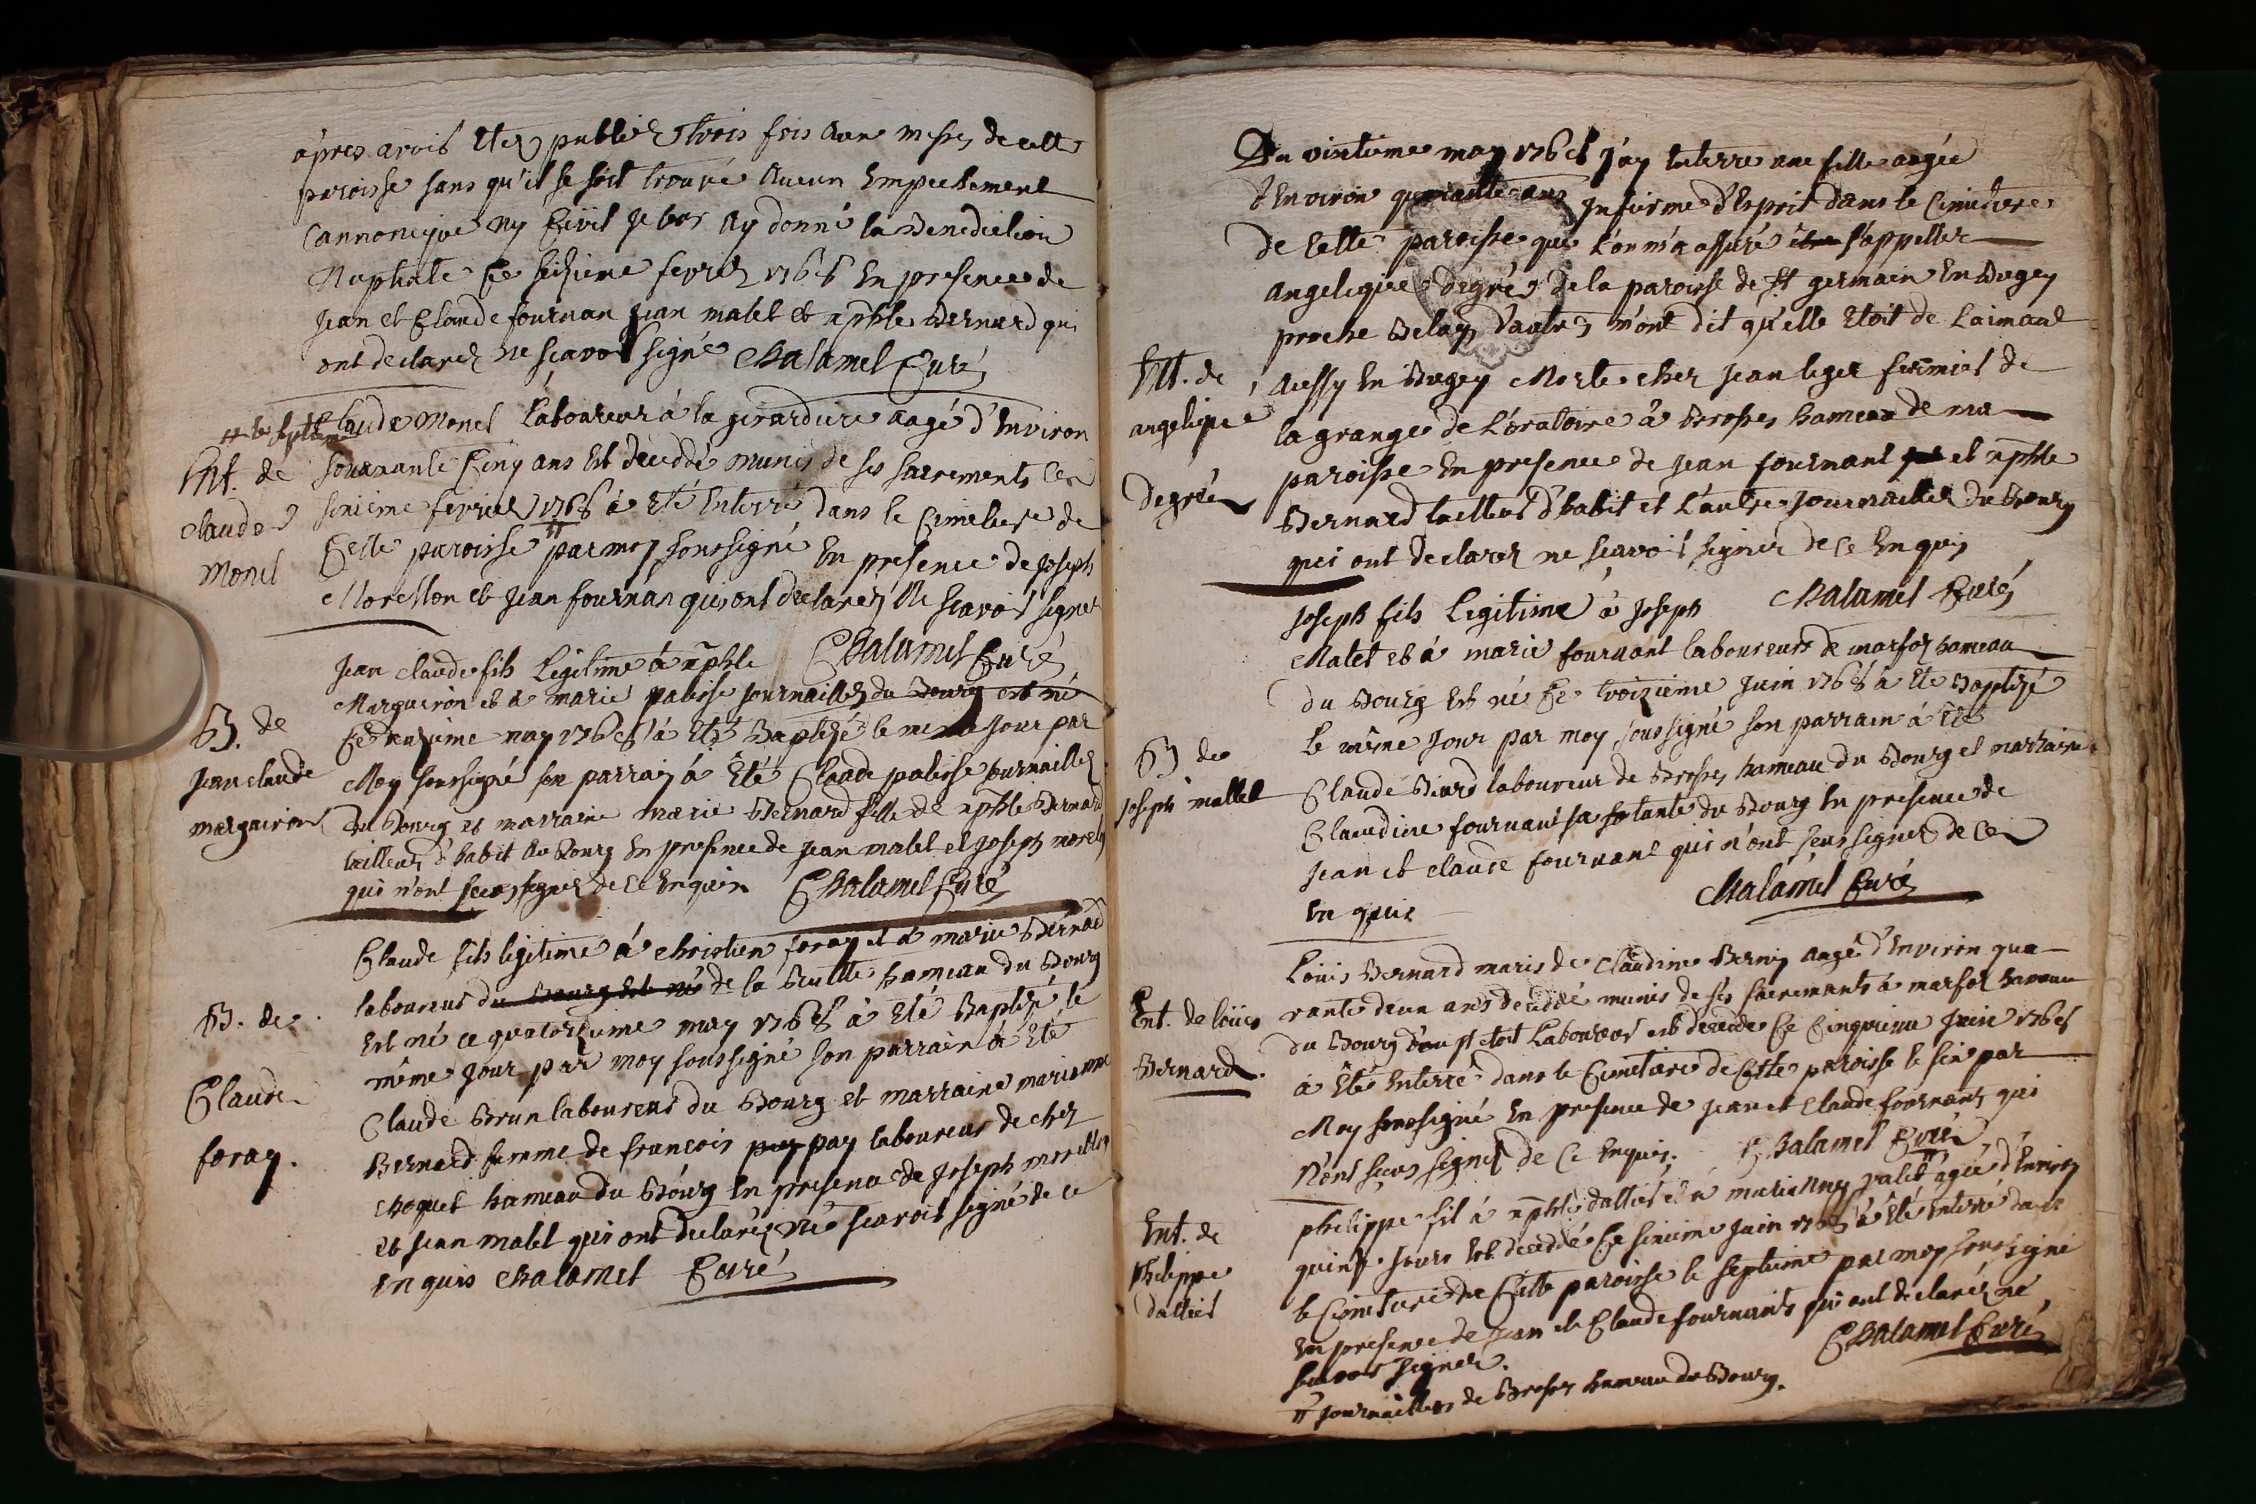 âpres avoir étez publiez trois fois aux messes de cette
paroisse sans qu'il se soit trouvé aucun Empechement
Cannonique ny Civil je leur ay donné la Benediction
Nuptiale Ce seizieme fevrez 1765 En presence de
Jean et Claude fournan jean malet et nphle Bernard qui
ont declarez ne sçavoir signé Chalamel Curé
# le septieme
Claude Monel Laboureur à la girardiere aagé d'Environ
Ent. de
claude
Monel
soixante Cinq ans est décedde munis de ses sacrements Ce
sixieme fevrier 1765 # à eté Enterré dans le Cimetiere de
Cette paroisse par moy soussigné En presence de joseph
Morellon et jean fournan qui ont declarez Ne scavoir signer
Chalamel Curé
B. de
jean claude
margueiron
Jean claude fils Legitime à nphle
Margueiron et à marie palisse journaillez du Bourg est né
Ce may 1765 à eté Baptizé le meme jour par
Moy soussigné son parrain à Eté Claude palisse journaillez
du Bourg et marraine marie Bernard fille de nphle Bernard
tailleur d'habit au Bourg En presence de jean malet et joseph
qui n'ont sceu signer de ce Enquis Chalamel Curé
B. de
Claude
foray.
Claude fils legitime à christien foray et à marie Bernard
laboureur du Bourg est né de la hameau du Bourg
Est né ce quatorzieme may 1765 à Eté Baptizé le
même jour par moy soussigné son parrain à Eté
Claude Brun laboureur du Bourg et marraine marie
Bernard femme de francois pay laboureur de chez
choquet hameau du Bourg En presence de joseph morellon
et jean malet qui ont declarez ne scavoir signé de ce
Enquis Chalamel Curé
Du vintieme may 1765 j'ay Enterré une fille aagée
d'Environ quarante ans Infirme d'Esprit dans le Cimetiere
de Cette paroisse que l'on m'a assuré s'appeller
angelique degrée de la paroisse de St germain En Bugey
proche Belay d'autres m'ont dit qu'elle Etoit de Laimant
Ent. de
angelique
degrée
aussy En Bugey Morte chez jean leger fermier de
la grange de L'oratoire à Brosses hameau de ma
paroisse En presence de jean fournant et nphle
Bernard tailleur d'habit et l'autre journaillez du Bourg
qui ont declarez ne scavoir signer de ce Enquis
Chalamel Curé
B de
joseph mallet
joseph fils Legitime à joseph
Malet et à marie fournant laboureurs de marfoz hameau
du Bourg Est né Ce troizieme juin 1765 à Eté Baptizé
le même jour par moy soussigné son parrain à Eté
Claude laboureur de Brosses hameau du Bourg et marraine
Claudine fournant sa tante du Bourg En presence de
jean et claude fournant qui n'ont sceu signer de ce
En quis Chalamel Curé
Ent. de loüis
Bernard.
Loüis Bernard maris de Claudine aagé d'Environ qua
rante deux ans décédé munis de ses sacremants à marfoz hameau
du Bourg Laboureur est décédé Ce Cinquieme juin 1765
à Eté Enterré dans le Cimetiere de Cette paroisse le six par
Moy soussigné En presence de jean et claude fournants qui
N'ont sceus signer de Ce Enquis. Chalamel Curé
Ent. de
Philippe
dallier
philippe fil à nphle dallier et à mariane agée d'Environ
quinze jours Est decedé Ce sixieme juin 1765 à Eté Enterré dans
le Cimetiere de Cette paroisse le septieme par moy soussigné
En presence de jean et Claude fournants qui ont declarés ne
scavoir signer. Chalamel Curé
# journailliers de Brosses hameau du Bourg.